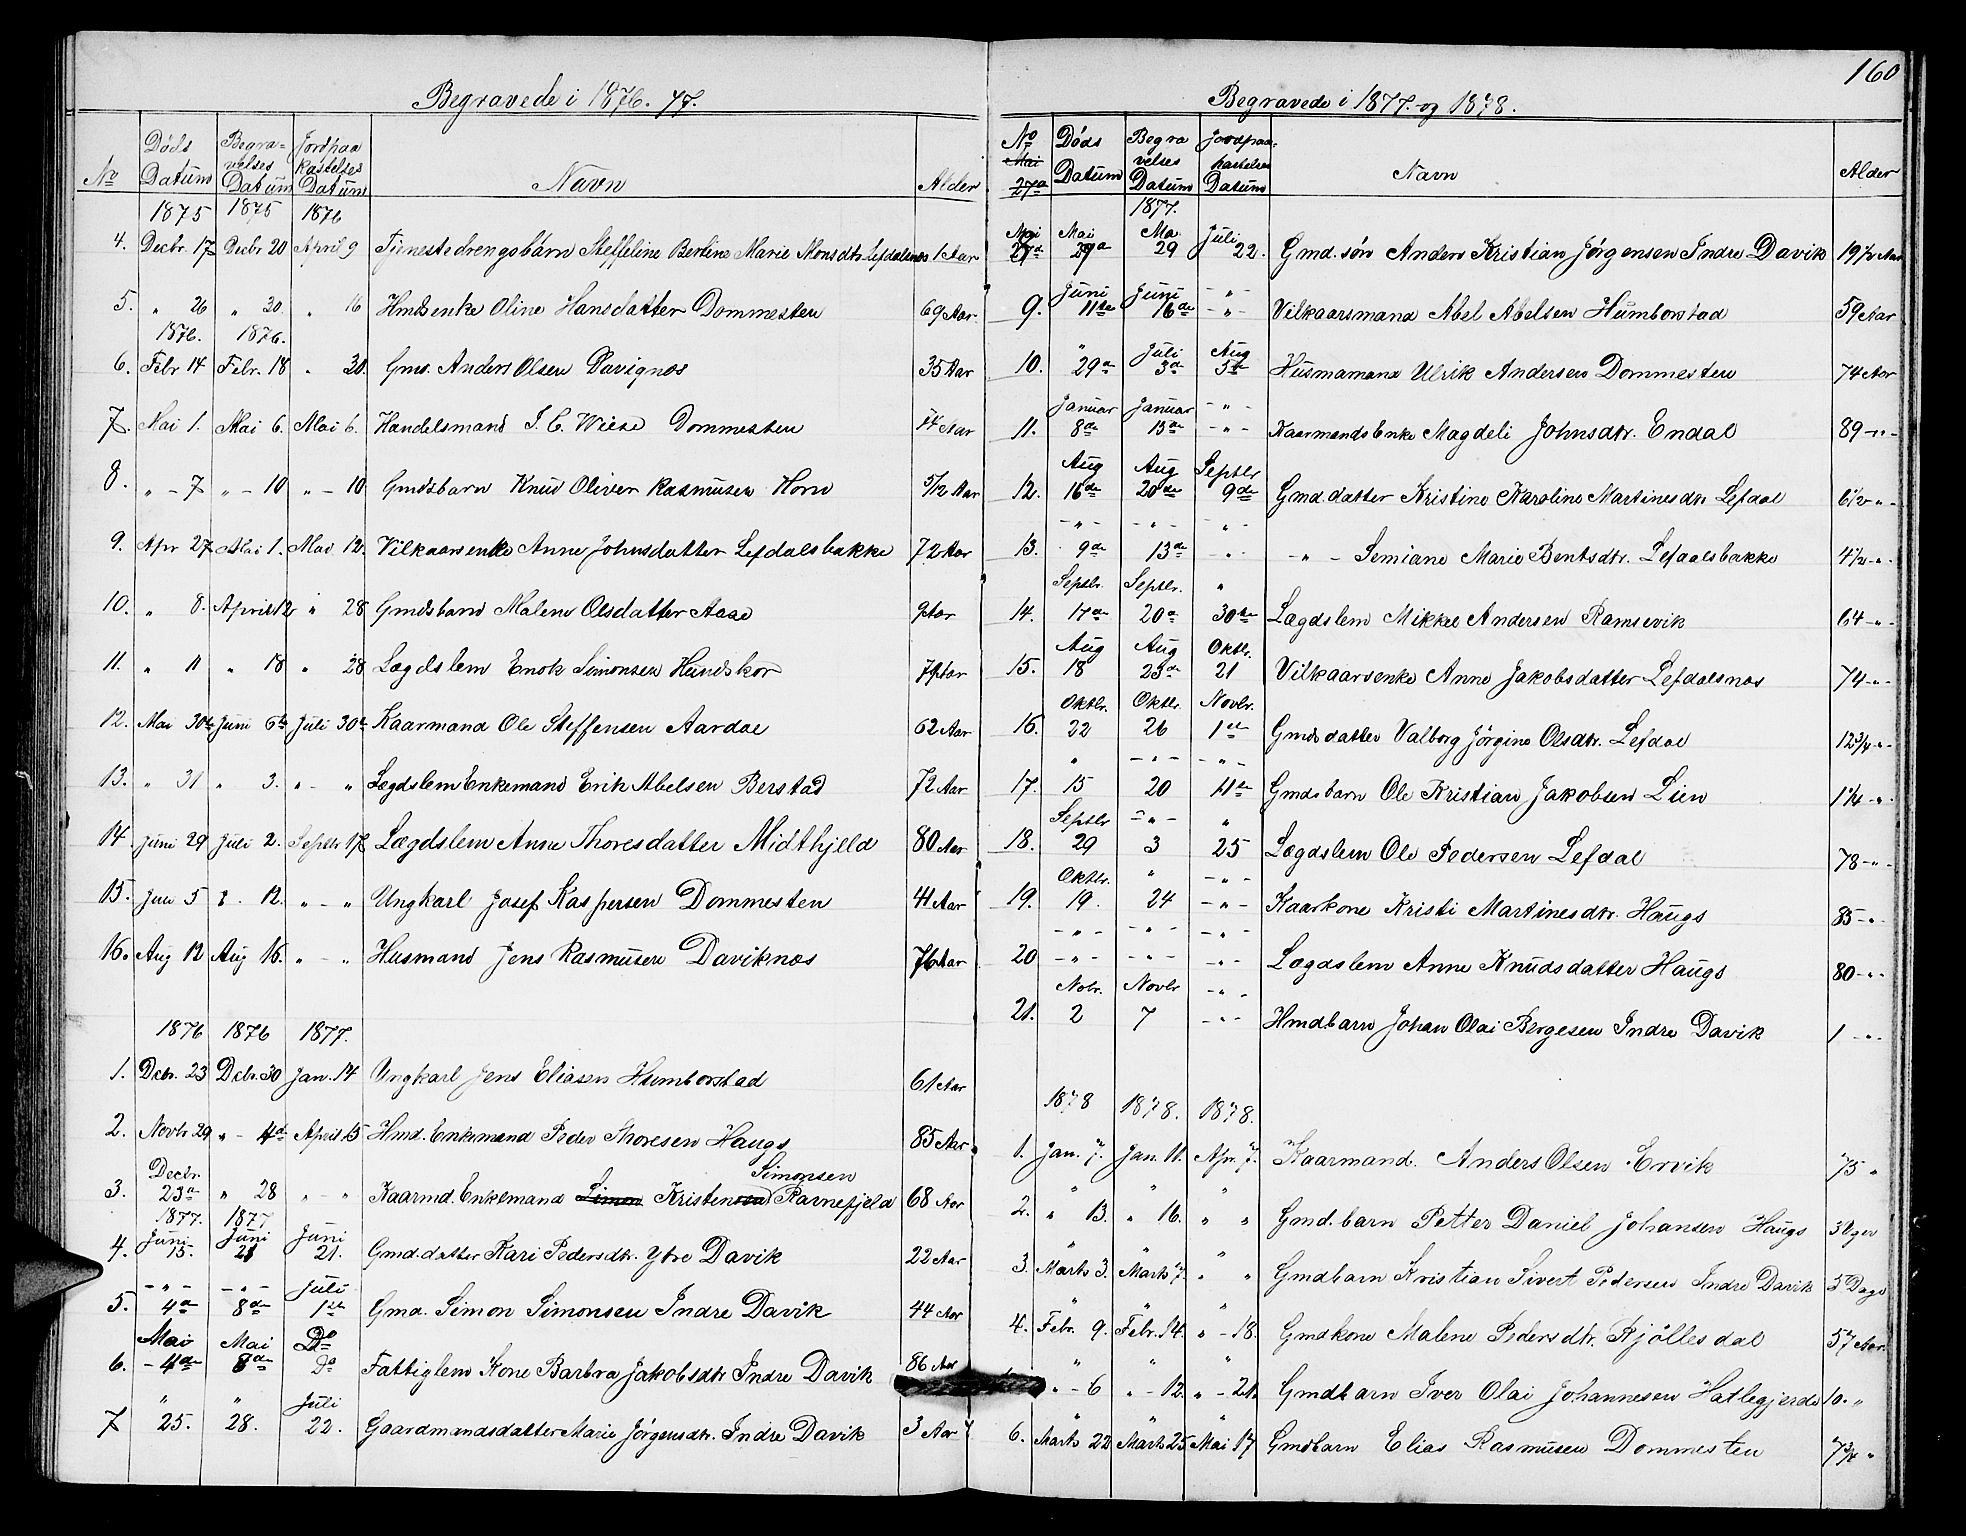 160
Begravede i 1876. 77.
No Døds Datum Begravelses Datum Jordpaakastelses Datum Navn Alder
1875 1875 1876
4. Decbr. 17 Decbr 20 April 9 Tjenestedrengsbarn Steffeline Bertine Marie Monsdtr Lefdalsnes 1 Aar
5. " 26 " 30. " 16 Hmdsenke Oline Hansdatter Dommesten 69 Aar.
1876. 1876.
6. Febr 14 Febr. 18 " 30. Gmd. Anders Olsen Davignæs 35 Aar
7. Mai 1. Mai 6. Mai 6. Handelsmand J. C. Wiese Dommesten Aar
8. " - 7 " - 10 " - 10 Gmdsbarn Knud Oliver Rasmusen Horn 5/12 Aar
9. Apr 27 Mai 1. Mai 12. Vilkaarsenke Anne Johnsdatter Lefdalsbakke 72 Aar
10. " 8. April 12 " 28 Gmdsbarn Malene Olsdatter Aase 9 Aar
11. " 11 " 18 " 28 Lægdslem Enok Simonsen Hundskor 79 Aar
12. Mai 30te Juni 6te Juli 30te Kaarmand Ole Steffensen Aardal 62 Aar
13. " 31 " 3. " - " Lægdslem Enkemand Erik Abelsen Berstad 72 Aar
14. Juni 29 Juli 2. Septbr 17 Lægdslem Anne Thoresdatter Midthjeld 80 Aar
15. 5 12. " - " Ungkarl Josef Kaspersen Dommesten 41 Aar
16. Aug 12 Aug 16. " - " Husmand Jens Rasmusen Daviknæs 76 Aar
1876 1876 1877.
1. Dcbr. 23 Dcbr. 30 Jan. 14 Ungkarl Jens Eliasen Humborstad 61 Aar
2. Novbr 29 " - 4de April 15 Hmd. Enkemand Peder Thoresen Haugs 85 Aar
Decbr. Simonsen
3. 23de " 28 " - " Kaarmd. Enkemand Simon Kristensen Ravnefjeld 68 Aar
1877. 1877
Juni Juni Juni
4. 15. 21 21. Gmd. datter Kari Pedersdtr. Ytre Davik 22 Aar
- " - - " - Juli
5. 4de 8de 1ste Gmd. Simon Simonsen Indre Davik 44 Aar
Mai Mai Do
6. - 4de 8de do Fattiglem Kone Barbra Jakobsdtr Indre Davik 86 Aar
" " Juli
7 25. 28. 22. Gaardmandsdatter Marie Jørgensdtr. Indre Davik 3 Aar
Begravede i 1877. og 1878.
No Døds Datum Begravelses Datum Jordpaakastelses Datum Navn Alder
Mai
27de
1877.
Mai Mai Mai Juli
29de 29 22. Gmd. søn Anders Kristian Jørgensen Indre Davik 19 1/2 Aar
Juni Juni - " -
9. 11te 16de - " - Vilkaarsmand Abel Abelsen Humborstad 59 Aar
" Juli Aug
10. 29de 3de 5te Husmamand Ulrik Andersen Dommesten 74 Aar
Januar Januar - " -
11. 8de 13de - " - Kaarmands Enke Magdeli Johnsdtr. Endal 89 - " -
Aug Aug Septbr
12. 16de 20de 9de Gmd. datter Kristine Karoline Martinesdtr Lefdal 6 1/2 - " -
- " - - " - - " -
13. 9de 13de - " - - " - Semiane Marie Bentsdtr. Lefdalsbakke 4 1/2 - " -
Septbr. Septbr. "
14. 17de 20de 30te Lægdslem Mikkel Andersen Ramsevik 64 - " -
Aug Aug Oktbr.
15. 18 23de 21 Vilkaarsenke Anne Jakobsdatter Lefdalsnæs 74 - " -
Oktbr. Oktbr. Novbr.
16. 22 26 1ste Gmds datter Valborg Jørgine Olsdtr. Lefdal 12 3/4 - " -
" - " - - " -
17. 15 20 11te Gmdsbarn Ole Kristian Jakobsen Lien 1 1/4 - " -
Septbr - " - "
18. 29 3 25 Lægdslem Ole Pedersen Lefdal 78 - " -
Oktbr. " - " -
19. 19. 24 - " - Kaarkone Kristi Martinesdtr. Haugs 85 - " -
- " - - " - - " -
20 - " - - " - - " - Lægdslem Anne Knudsdatter Haugs 80 - " -
Nobr. Novbr - " -
21. 2 7 - " - Hmdbarn Johan Olai Børgesen Indre Davik 1 - " -
1878 1878. 1878.
1. Jan. 7. Jan. 11. Apr. 7. Kaarmand. Anders Olsen Ervik 75 "
2. " 13. " 16. " " Gmd. barn Petter Daniel Johansen Haugs 3 Uger
3. Marts 3. Marts 7. " " Gmdbarn Kristian Sivert Pedersen Indre Davik 5 Dage
4. Febr. 9. Febr. 14. " - 18. Gmdkone Malene Pedersdtr. Rjøllesdal 57 Aar.
" - 6 " - 12. " - 21. Gmdbarn Iver Olai Johannesen Hatlegjerde 10. "
6. Marts 22 Marts 25 Mai 17 Gmdbarn Elias Rasmusen Dommesten 7 3/4 "